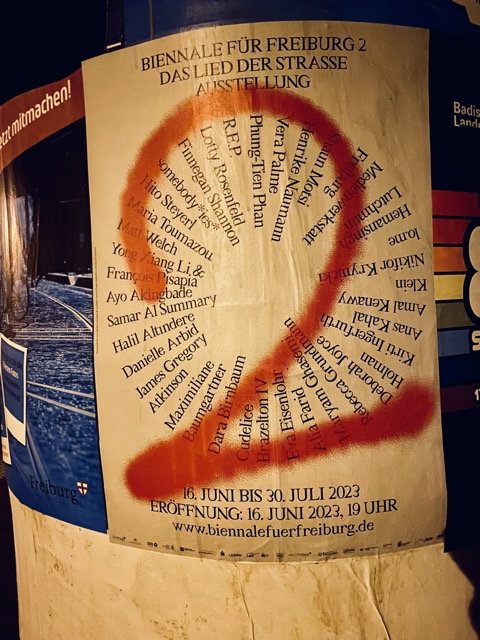 BIENNALE FÜR FREIBURG 2
DAS LIED DER STRASSE
AUSSTELLUNG
Ayo Akingbade
Samar Al Summary
Halil Altındere
Danielle Arbid
James Gregory
Atkinson
Maximiliane
Baumgartner
Dara Birnbaum
Cudelice
Brazelton IV
Eisenlohr
Alia Farid
Maryam
Rebecca Grundmann
Deborah Joyce
Holman
Kirti Ingerfurth
Anas Kahal
Amal Kenawy
Klein
Nikifor Krynicki
Jome
Hemansingh
Lutchmun
Medienwerkstatt
Freiburg
Shaun Motsi
Henrike Naumann
Vera Palme
Phung-Tien Phan
R.E.P.
Lotty Rosenfeld
Finnegan Shannon
somebody*ies*
Hito Steyerl
Maria Toumazou
Matt Welch
Yong Xiang Li &
François Pisapia
16. JUNI BIS 30. JULI 2023
ERÖFFNUNG: 16. JUNI 2023, 19 UHR
www.biennalefuerfreiburg.de
etzt mitmachen!
Freiburg
Badis
Lande